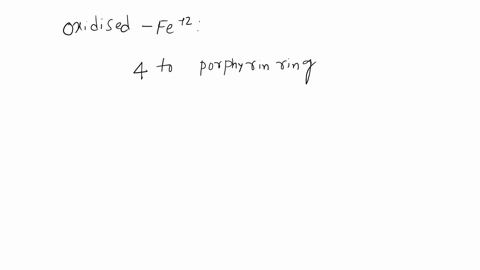 Oxidised - Fe⁺²:
4 to porphyrin ring